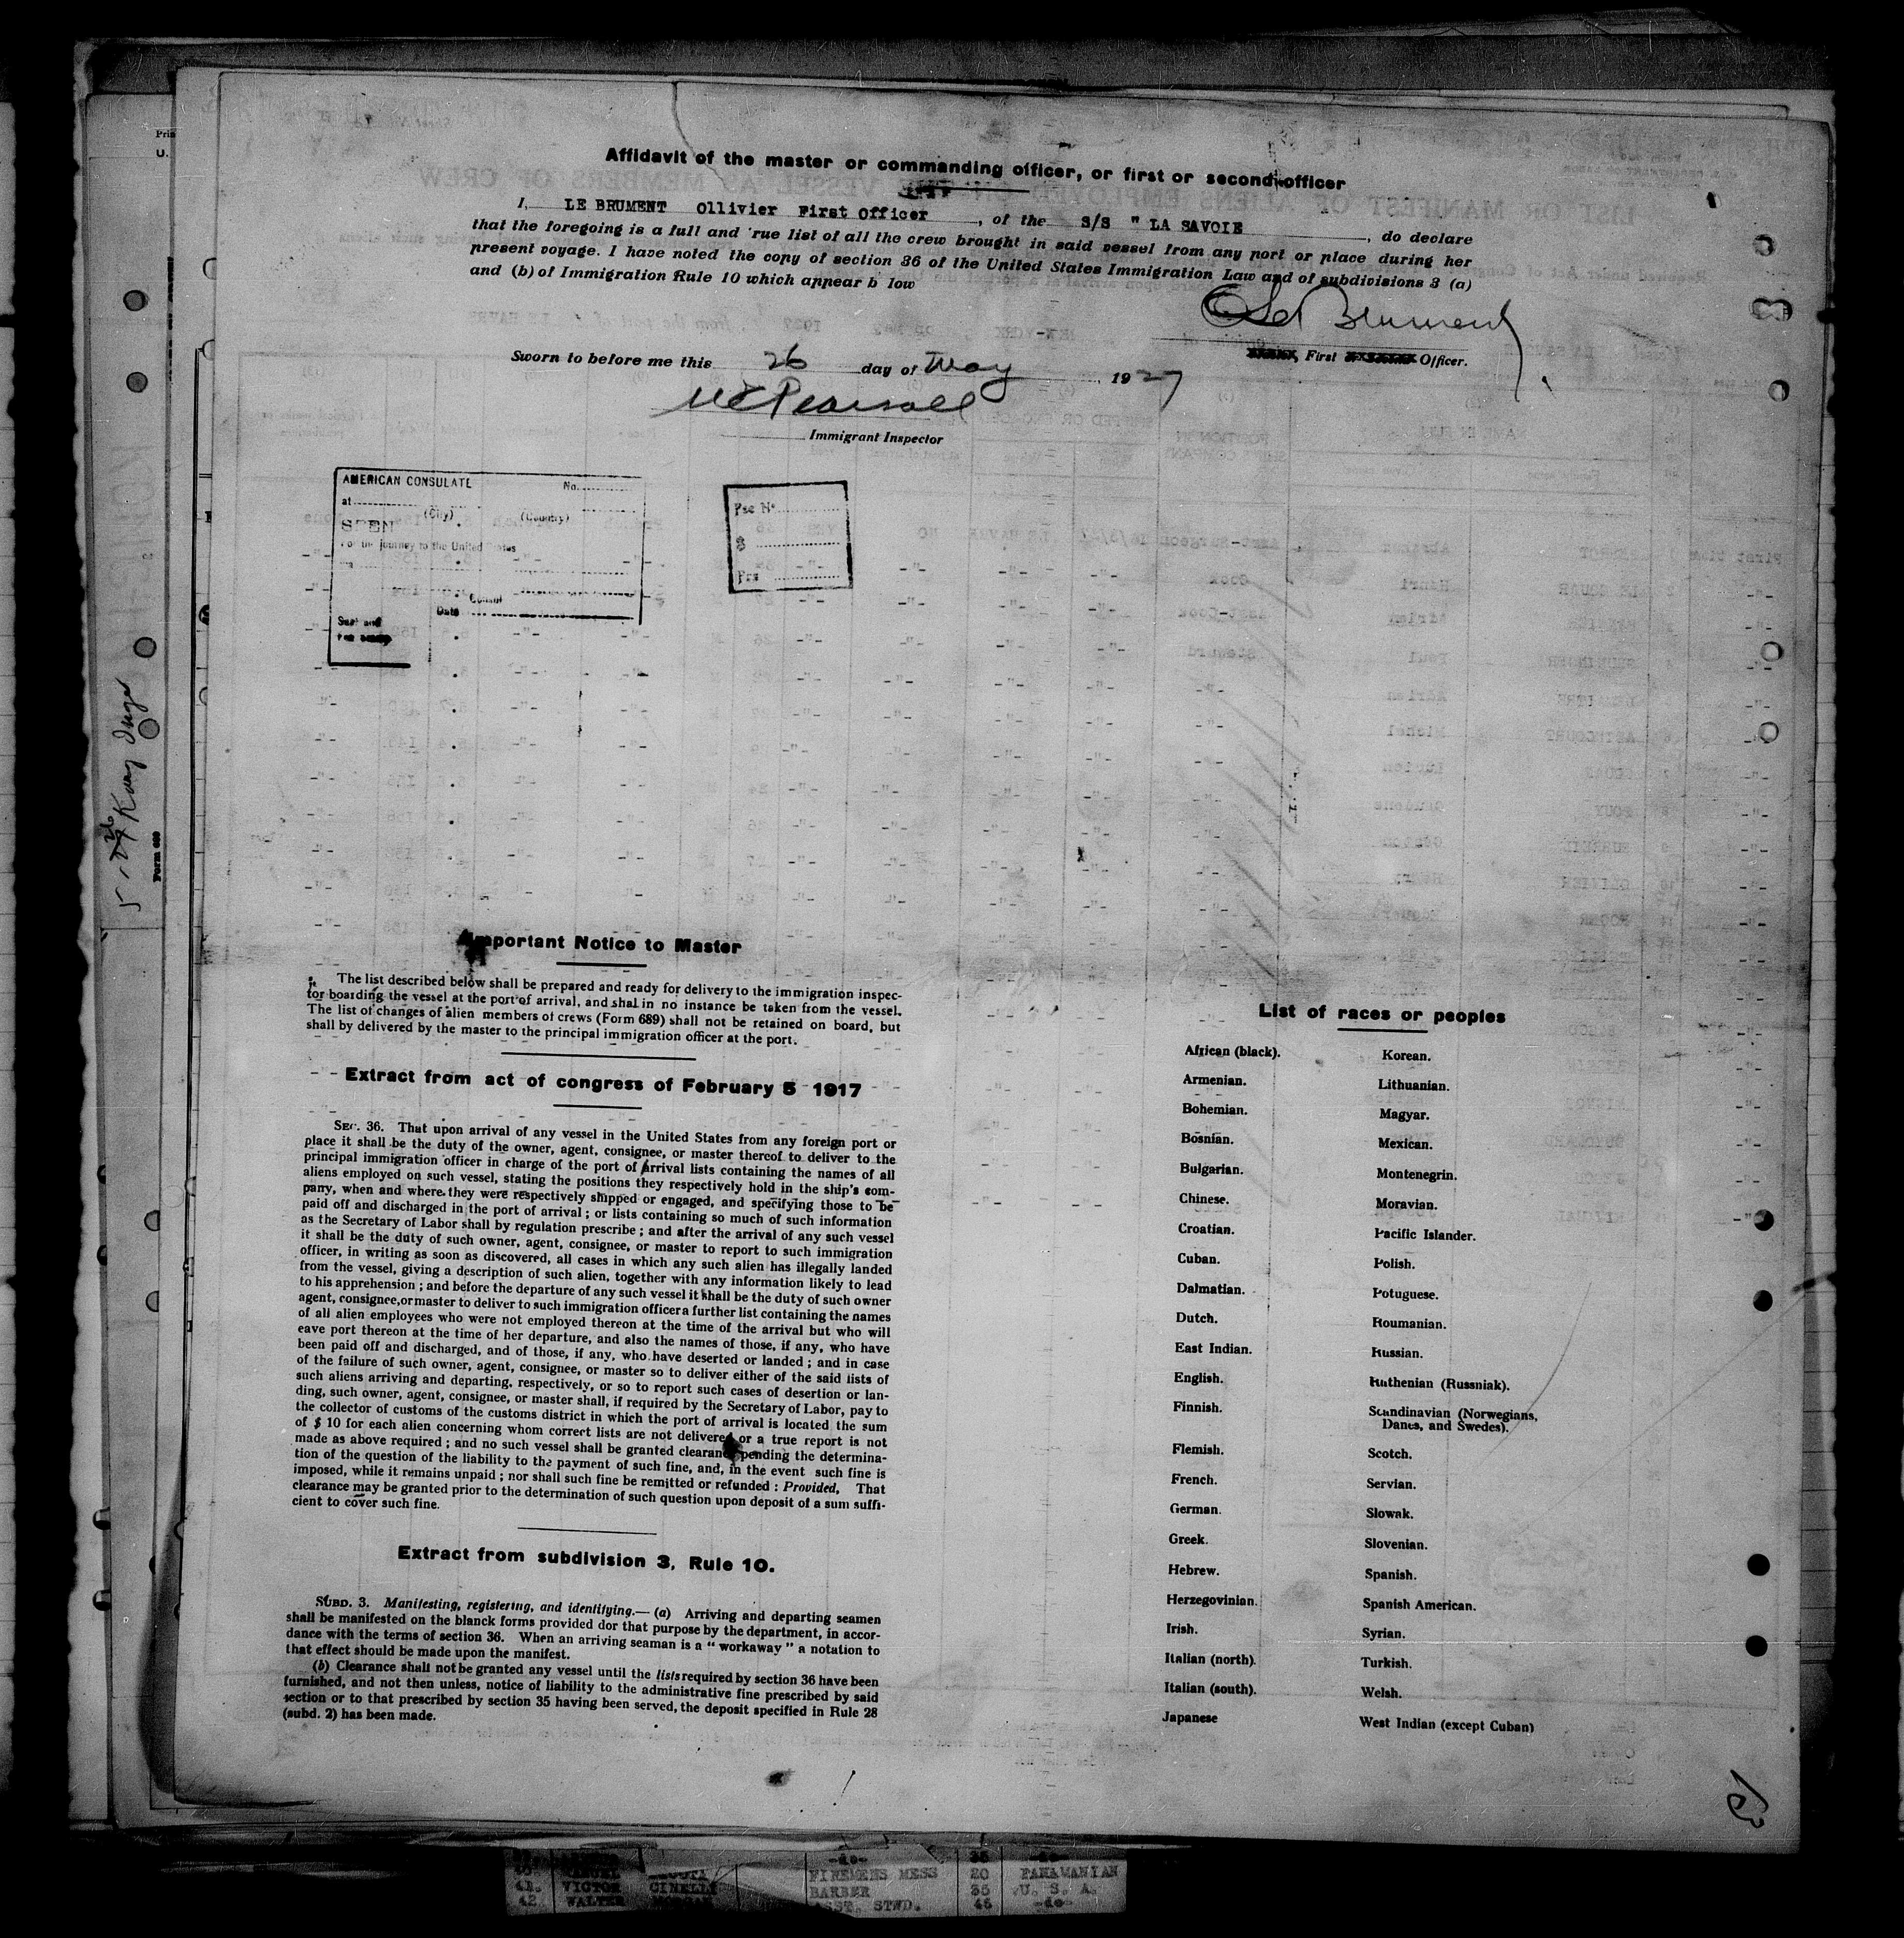 Affidavit of the master or commanding officer, or first or second officer
I, LE BRUMENT Ollivier First Officer, of the S/S " LA SAVOIE, do declare
that the foregoing is a full and rue list of all the crew brought in said vessel from any port or place during her
present voyage. I have noted the copy of section 36 of the United States Immigration Law and of subdivisions 3 (a)
and (b) of Immigration Rule 10 which appear b low
Le Brument
First Officer.
Sworn to before me this 26 day of May 1927
Immigrant Inspector
AMERICAN CONSULATE No.
at
(City) (Country)
SEEN
For the journey to the United States
Consul
Date
Fee No
$
Frs
5-26 Form 689
Important Notice to Master
The list described below shall be prepared and ready for delivery to the immigration inspec-
tor boarding the vessel at the port of arrival, and shal in no instance be taken from the vessel.
The list of changes of alien members of crews (Form 689) shall not be retained on board, but
shall by delivered by the master to the principal immigration officer at the port.
Extract from act of congress of February 5 1917
SEC. 36. That upon arrival of any vessel in the United States from any foreign port or
place it shall be the duty of the owner, agent, consignee, or master thereof to deliver to the
principal immigration officer in charge of the port of arrival lists containing the names of all
aliens employed on such vessel, stating the positions they respectively hold in the ship's com-
pany, when and where they were respectively shipped or engaged, and specifying those to be
paid off and discharged in the port of arrival ; or lists containing so much of such information
as the Secretary of Labor shall by regulation prescribe ; and after the arrival of any such vessel
it shall be the duty of such owner, agent, consignee, or master to report to such immigration
officer, in writing as soon as discovered, all cases in which any such alien has illegally landed
from the vessel, giving a description of such alien, together with any information likely to lead
to his apprehension ; and before the departure of any such vessel it shall be the duty of such owner
agent, consignee, or master to deliver to such immigration officer a further list containing the names
of all alien employees who were not employed thereon at the time of the arrival but who will
eave port thereon at the time of her departure, and also the names of those, if any, who have
been paid off and discharged, and of those, if any, who have deserted or landed ; and in case
of the failure of such owner, agent, consignee, or master so to deliver either of the said lists of
such aliens arriving and departing, respectively, or so to report such cases of desertion or lan-
ding, such owner, agent, consignee, or master shall, if required by the Secretary of Labor, pay to
the collector of customs of the customs district in which the port of arrival is located the sum
of $ 10 for each alien concerning whom correct lists are not delivered or a true report is not
made as above required ; and no such vessel shall be granted clearance pending the determina-
tion of the question of the liability to the payment of such fine, and, in the event such fine is
imposed, while it remains unpaid ; nor shall such fine be remitted or refunded : Provided, That
clearance may be granted prior to the determination of such question upon deposit of a sum suffi-
cient to cover such fine.
Extract from subdivision 3, Rule 10.
SUBD. 3. Manifesting, registering, and identifying.— (a) Arriving and departing seamen
shall be manifested on the blanck forms provided dor that purpose by the department, in accor-
dance with the terms of section 36. When an arriving seaman is a " workaway " a notation to
that effect should be made upon the manifest.
(b) Clearance shall not be granted any vessel until the lists required by section 36 have been
furnished, and not then unless, notice of liability to the administrative fine prescribed by said
section or to that prescribed by section 35 having been served, the deposit specified in Rule 28
(subd. 2) has been made.
List of races or peoples
African (black). Korean.
Armenian. Lithuanian.
Bohemian. Magyar.
Bosnian. Mexican.
Bulgarian. Montenegrin.
Chinese. Moravian.
Croatian. Pacific Islander.
Cuban. Polish.
Dalmatian. Potuguese.
Dutch. Roumanian.
East Indian. Russian.
English. Ruthenian (Russniak).
Finnish. Scandinavian (Norwegians,
Danes, and Swedes).
Flemish. Scotch.
French. Servian.
German. Slowak.
Greek. Slovenian.
Hebrew. Spanish.
Herzegovinian. Spanish American.
Irish. Syrian.
Italian (north). Turkish.
Italian (south). Welsh.
Japanese West Indian (except Cuban)
FIREMENS MESS 20 PANAMANIAN
41. VICTOR CINELLI BARBER 35 U. S. A.
42 WALTER ASST. STWD. 45 -do-